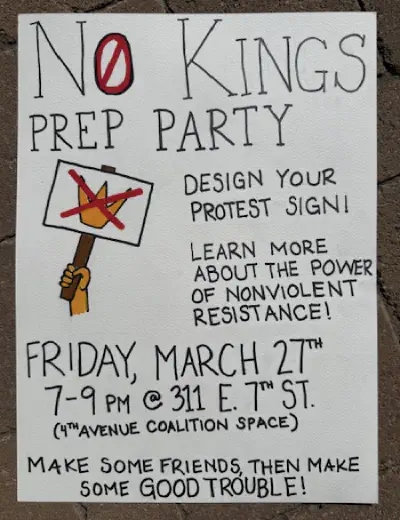 NO KINGS
PREP PARTY
DESIGN YOUR
PROTEST SIGN!
LEARN MORE
ABOUT THE POWER
OF NONVIOLENT
RESISTANCE!
FRIDAY, MARCH 27TH
7-9 PM @ 311 E. 7TH ST.
(4TH AVENUE COALITION SPACE)
MAKE SOME FRIENDS, THEN MAKE
SOME GOOD TROUBLE!